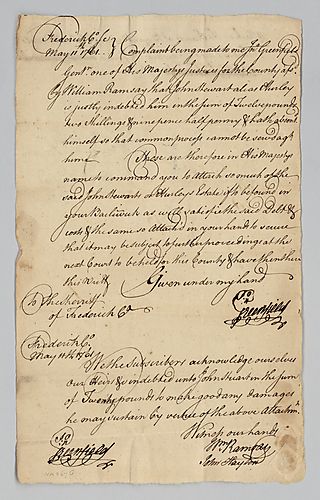 Frederick Co. Sc
May 11th 1761
Complaint being made to me Jno. Greenfield
Gent. one of His Majestys Justices for the County afsd.
by William Ramsay that John Stewart als Hurley
is justly indebted him in the sum of Twelve pounds
two Shillings & nine pence half penny & hath absented
himself so that common process cannot be served agt.
him These are therefore in His Majestys
name to command you to Attach so much of the
said John Stewarts als Hurleys Estate if to be found in
your Bailiwick as will satisfie the said Debt &
costs & the same so Attached in your hands to secure
that it may be subject to further proceedings at the
next Court to be held for this County & have then there
this Writ Given under my hand
To the Sherriff
of Frederick Co.
Jo. Greenfield
Frederick Co.
May 11th 1761
We the Subscribers acknowledge ourselves
our Heirs & indebted unto John Stuart in the sum
of Twenty pounds to make good any damages
he may sustain by vertue of the above Attachmt.
Witness our hands
Wm. Ramsay
John Haydon
Jo. Greenfield